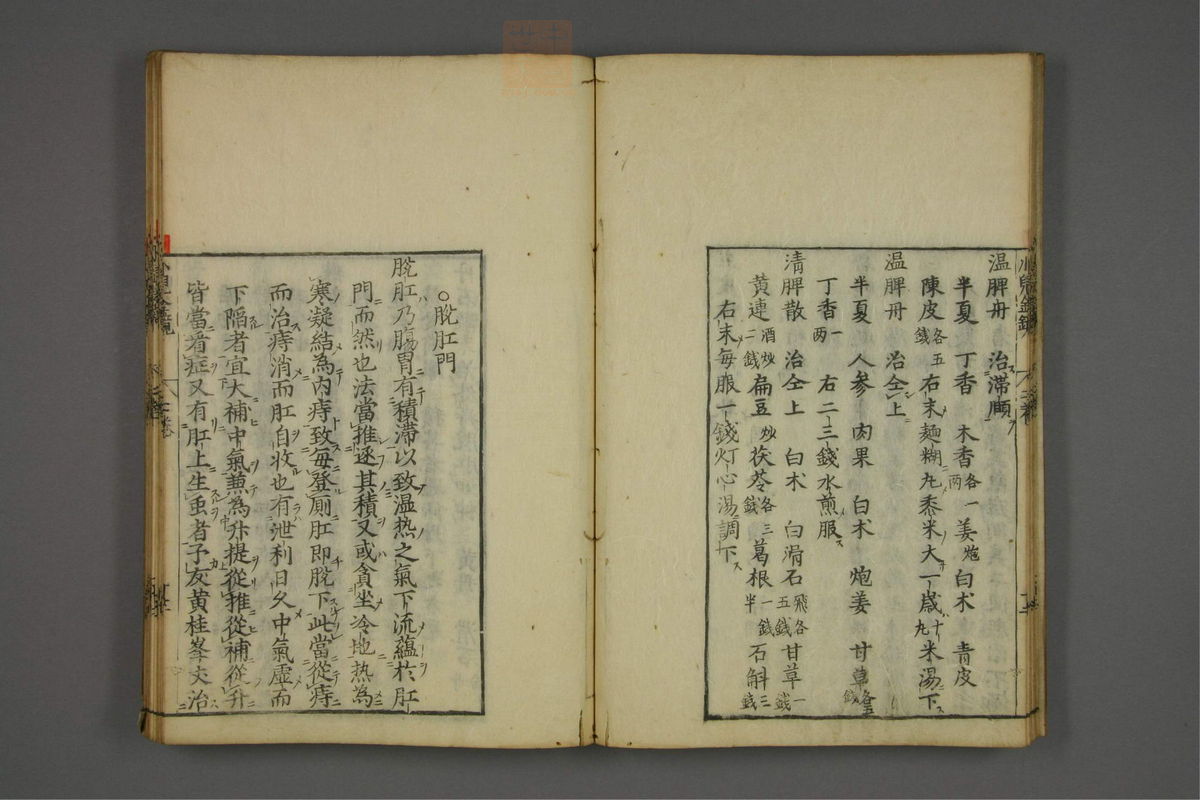 温脾丹　治滯頤
半夏　丁香　木香各一两　姜炮　白术　青皮
陳皮各五錢　右末麵糊丸黍米大一歲十丸米湯下
温脾丹　治仝上
半夏　人参　肉果　白术　炮姜　甘草各五錢
丁香一两　右二三錢水煎服
清脾散　治仝上　白术　白滑石飛各五錢　甘草一錢
黃連酒炒二錢　扁豆炒　茯苓各三錢　葛根一錢半　石斛三錢
右末每服一錢灯心湯調下
○脫肛門
脫肛乃膓胃有積滯以致温热之氣下流蘊於肛
門而然也法當推逐其積又或貪坐冷地热為
寒凝結為内痔致每登厠肛即脫下此當從痔
而治痔消而肛自收也有泄利日久中氣虛而
下陷者宜大補中氣兼為升提從推從補從升
皆當看症又有肛上生虫者予友黃桂峯丈治